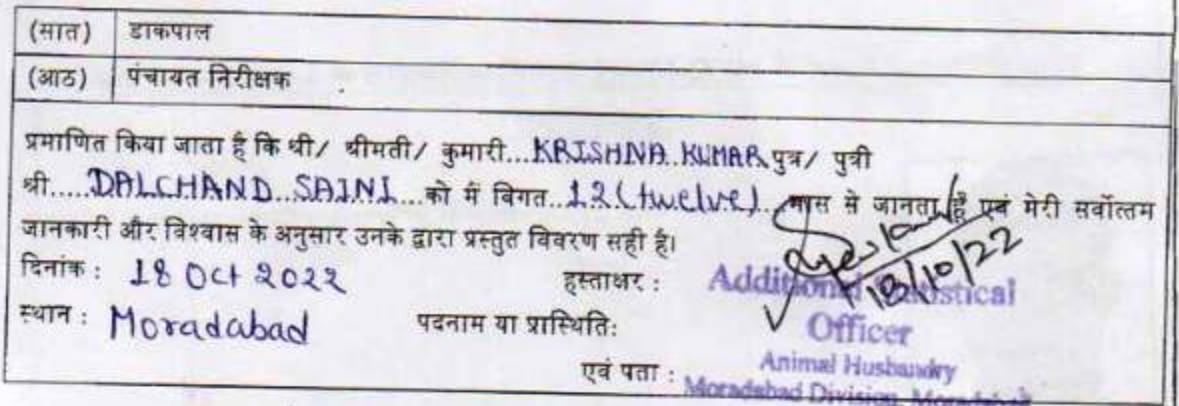 (सात) डाकपाल
(आठ) पंचायत निरीक्षक
प्रमाणित किया जाता है कि श्री/ श्रीमती/ कुमारी...KRISHNA KUMAR पुत्र/ पुत्री
श्री.....DALCHAND..SAINI...को मैं विगत..12 (twelve)...मास से जानता हूँ एवं मेरी सर्वोत्तम
जानकारी और विश्वास के अनुसार उनके द्वारा प्रस्तुत विवरण सही है।
दिनांक : 18 Oct 2022 हस्ताक्षर : 18/10/22
Additional Statistical
स्थान : Moradabad पदनाम या प्रास्थिति: Officer
एवं पता : Animal Husbandry
Moradabad Division, Moradabad